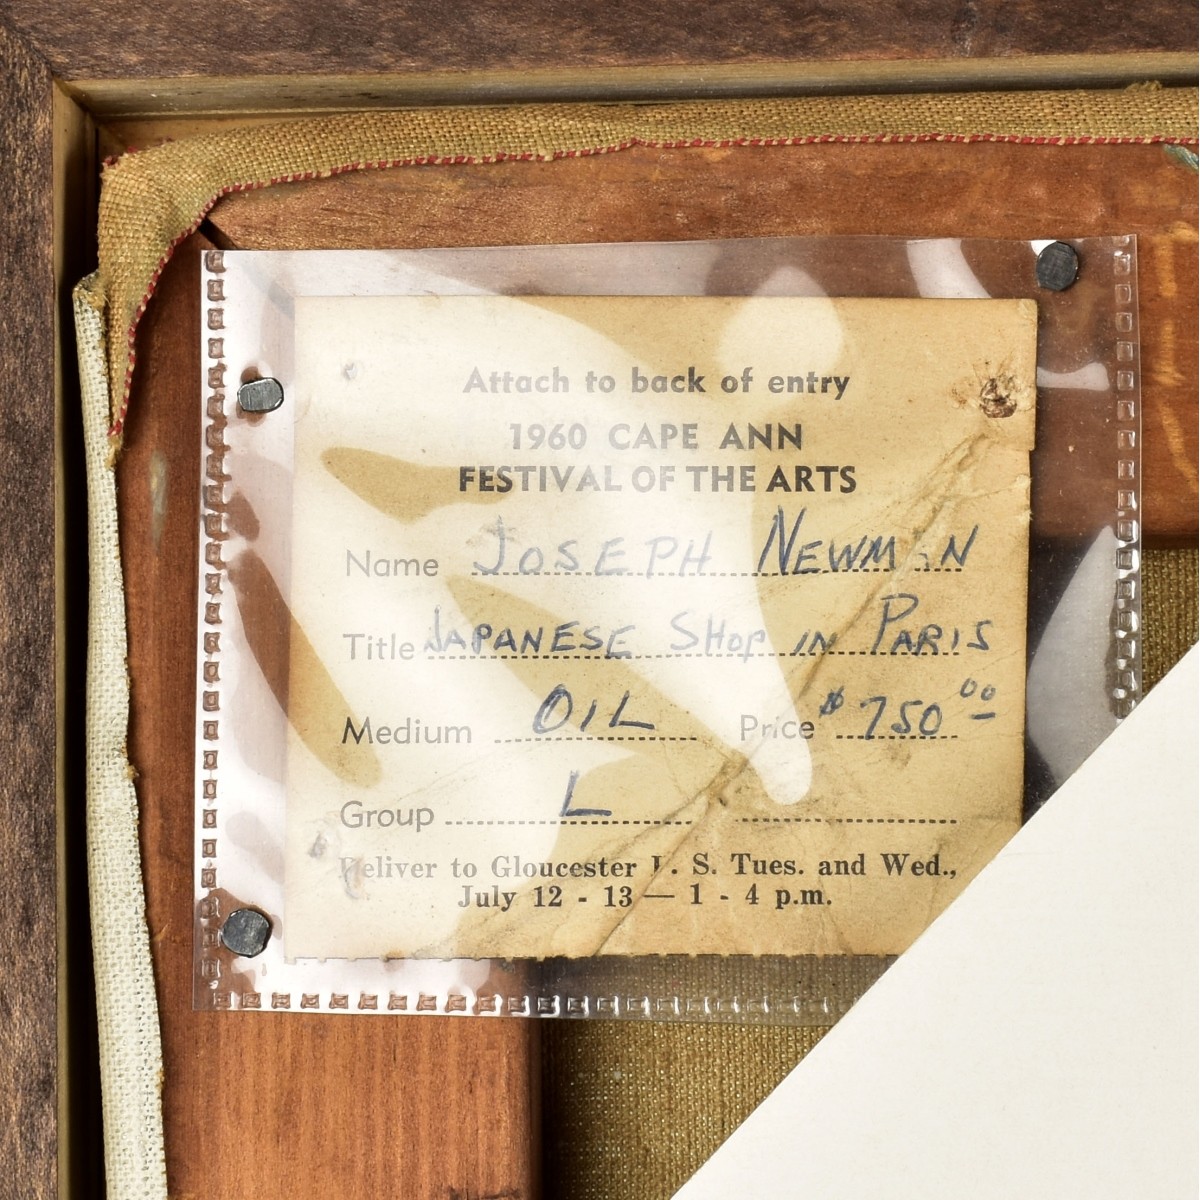 Attach to back of entry
1960 CAPE ANN
FESTIVAL OF THE ARTS
Name JOSEPH NEWMAN
Title JAPANESE SHOP IN PARIS
Medium OIL Price $750.00
Group L
Deliver to Gloucester S. Tues. and Wed.,
July 12 - 13 — 1 - 4 p.m.